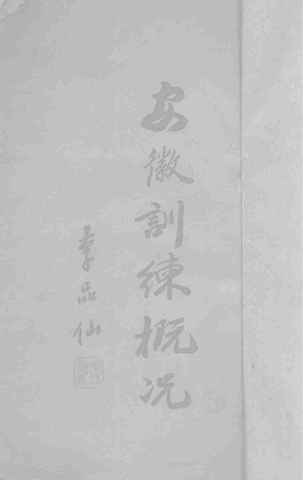 安徽訓練概况
李品仙